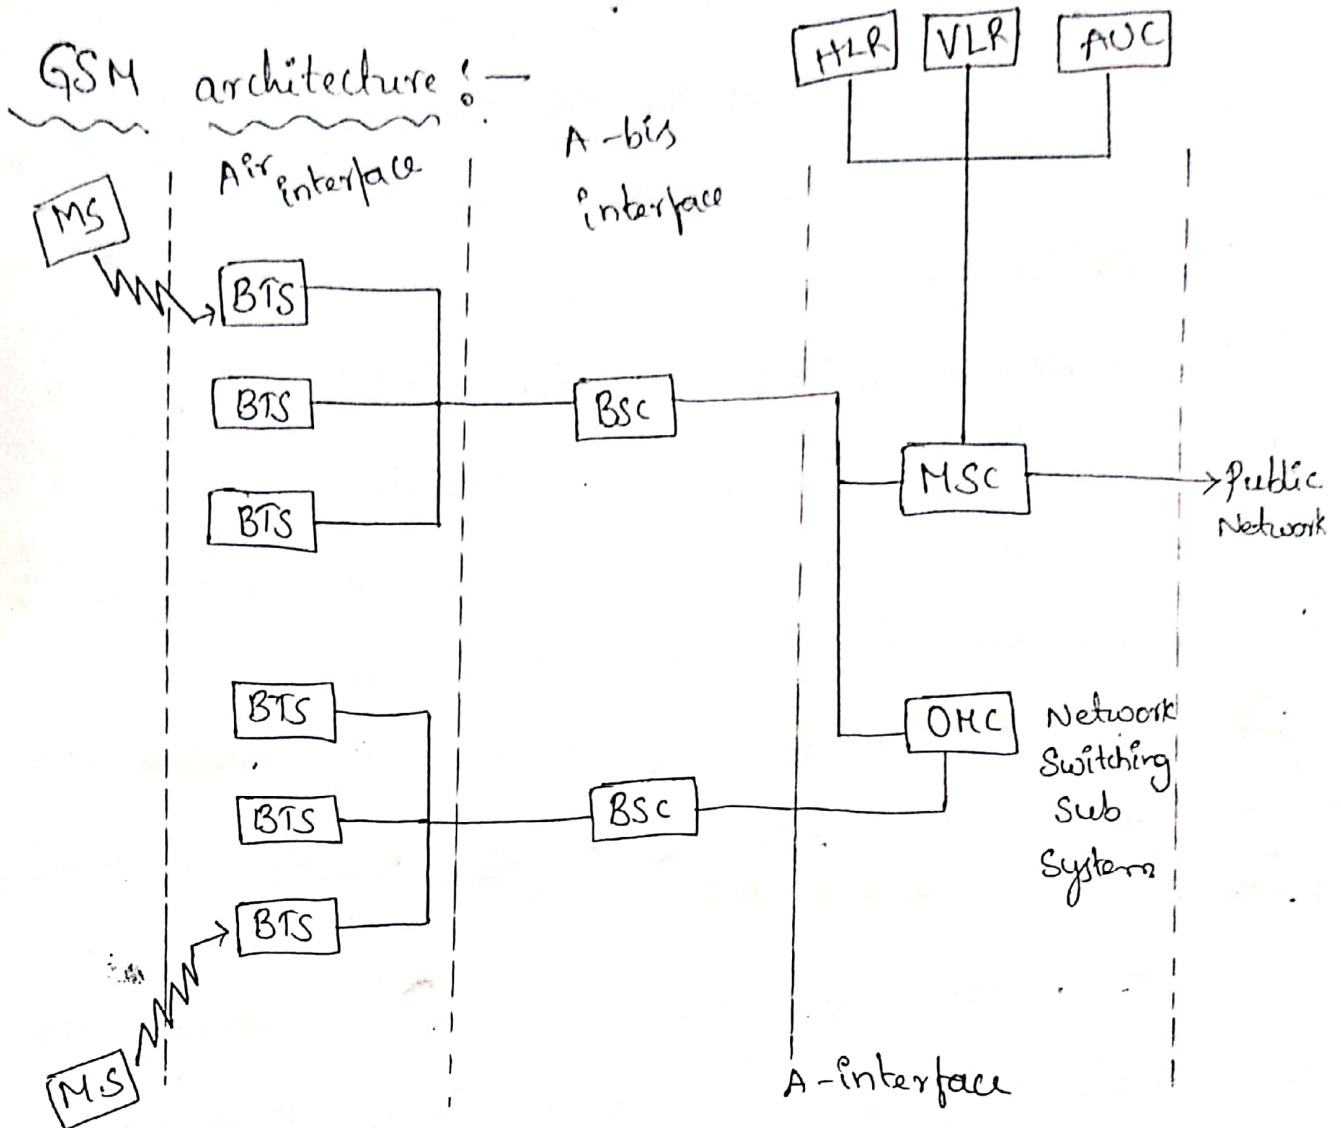 GSM architecture :-
HLR VLR AUC
Air interface
A-bis
interface
MS
BTS
BTS
BSC
BTS
MSC
Public
Network
BTS
OMC
Network
Switching
Sub
System
BTS
BSC
BTS
MS
A-interface